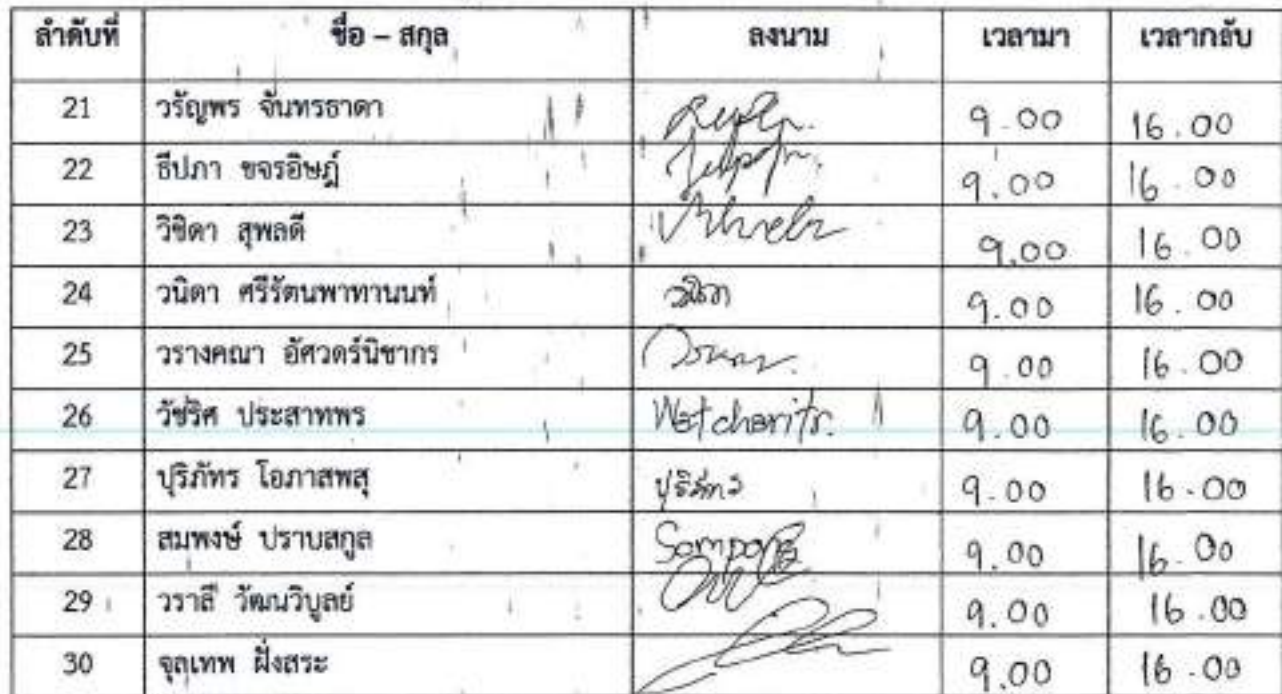 ลำดับที่ ชื่อ – สกุล ลงนาม เวลามา เวลากลับ
21 วรัญพร จันทรธาดา 9.00 16.00
22 ธีปภา ขจรอิษฎ์ 9.00 16.00
23 วิชิดา สุพลดี 9.00 16.00
24 วนิดา ศรีรัตนพาทานนท์ วนิดา 9.00 16.00
25 วรางคณา อัศวดร์นิชากร 9.00 16.00
26 วัชริศ ประสาทพร Watcharitr. 9.00 16.00
27 ปุริภัทร โอภาสพสุ ปุริภัทร 9.00 16.00
28 สมพงษ์ ปราบสกูล Sompong 9.00 16.00
29 วราลี วัฒนวิบูลย์ 9.00 16.00
30 จุลเทพ ฝั่งสระ 9.00 16.00